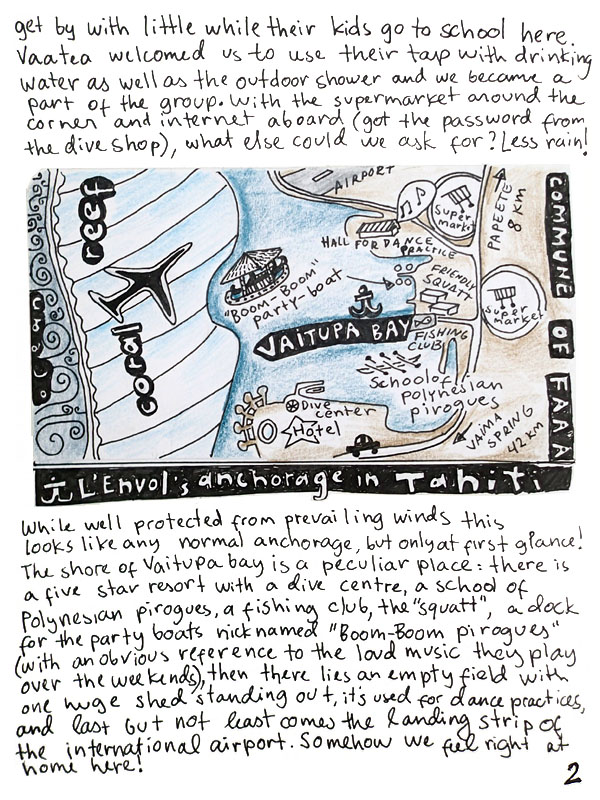 get by with little while their kids go to school here.
Vaatea welcomed us to use their tap with drinking
water as well as the outdoor shower and we became a
part of the group. With the supermarket around the
corner and internet aboard (got the password from
the dive shop), what else could we ask for? Less rain!
AIRPORT
reef
Super
market
PAPEETE
8 KM
COMMUNE OF FAA'A
HALL FOR DANCE
PRACTICE
"BOOM-BOOM"
party-boat
FRIENDLY
SQUATT
super
market
ocean
VAITUPA BAY
FISHING
CLUB
coral
School of
polynesian
pirogues
Dive
center
Hotel
VAIMA
SPRING
42 KM
L'Envol's anchorage in Tahiti
While well protected from prevailing winds this
looks like any normal anchorage, but only at first glance!
The shore of Vaitupa bay is a peculiar place: there is
a five star resort with a dive centre, a school of
Polynesian pirogues, a fishing club, the "squatt", a dock
for the party boats nicknamed "Boom-Boom pirogues"
(with an obvious reference to the loud music they play
over the weekends), then there lies an empty field with
one huge shed standing out, it's used for dance practices,
and last but not least comes the landing strip of
the international airport. Somehow we feel right at
home here!
2